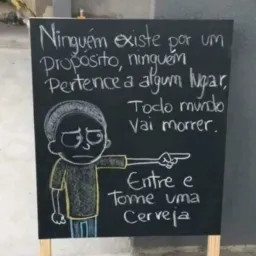 Ninguém existe por um
propósito, ninguém
Pertence a algum lugar,
Todo mundo
Vai morrer.
Entre e
Tome uma
Cerveja